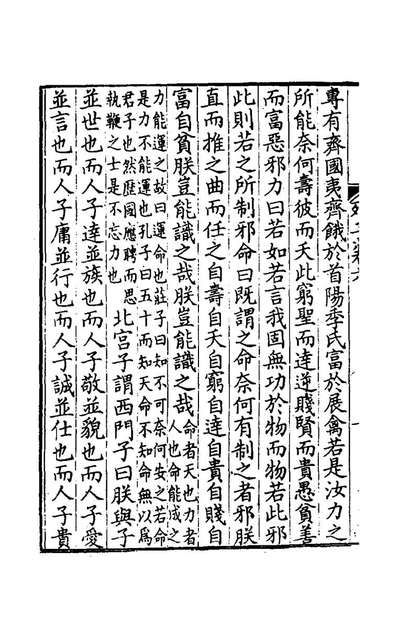 專有齊國夷齊餓於首陽季氏富於展禽若是汝力之
所能奈何壽彼而夭此窮聖而達逆賤賢而貴愚貧善
而富惡邪力曰若如若言我固無功於物而物若此邪
此則若之所制邪命曰既謂之命奈何有制之者邪朕
直而推之曲而任之自壽自夭自窮自達自貴自賤自
富自貧朕豈能識之哉朕豈能識之哉
命者天也力者
人也命能成之
力能運之故曰運命也莊子曰知不可奈何安之若命
是力不能運也孔子曰五十而知天命不知命無以爲
君子也然歷國應聘而思
執鞭之士是不忘力也
北宮子謂西門子曰朕與子
並世也而人子達並族也而人子敬並貌也而人子愛
並言也而人子庸並行也而人子誠並仕也而人子貴